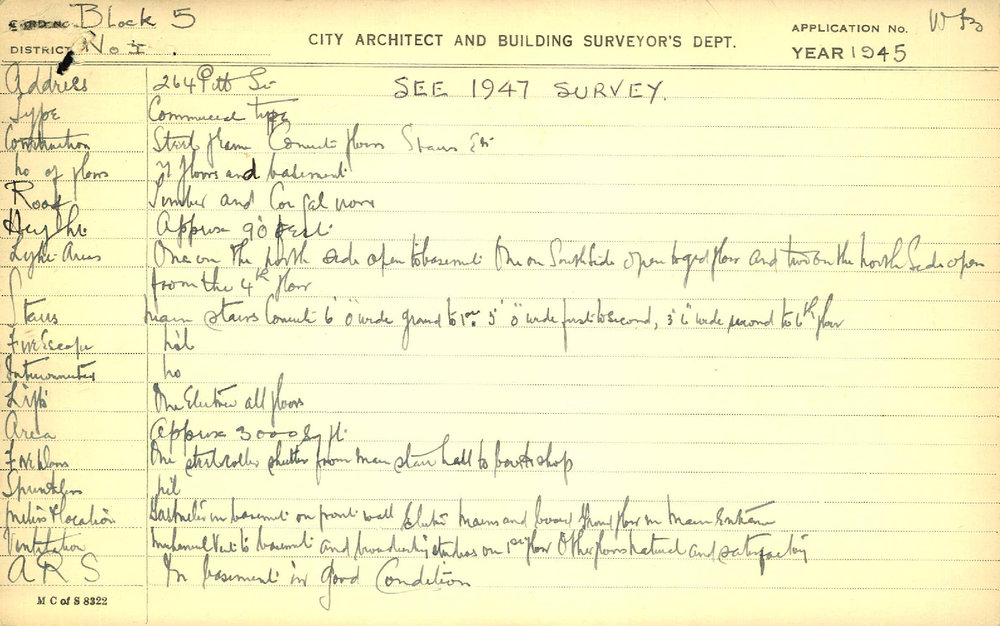 Block 5
DISTRICT No 5.
CITY ARCHITECT AND BUILDING SURVEYOR'S DEPT.
APPLICATION NO.
YEAR 1945
Address 264 Pitt St
SEE 1947 SURVEY.
Type Commercial type
Construction Steel frame Concrete floors Stairs Etc
No of floors 7 floors and basement
Roof Timber and Cor gal iron
Height Approx 90 feet
Light Areas One on the north side open to basement One on South Side open to grd floor and two on the north Side open
from the 4th floor
Stairs Main stairs Concrete 6' 0" wide ground to 1st 5' 0" wide first to second, 3' 6" wide second to 6th floor
Fire Escape Nil
Intercommunication No
Lifts One Electric all floors
Area Approx 3000 Sq ft
Fire Doors One steel roller shutter from Main stair hall to book shop
Sprinklers Nil
Meters & location Gas meter in basement on front wall Electric Mains and board Ground floor in Main Entrance
Ventilation Mechanical Vent to basement and broadcasting studios on 1st floor Other floors natural and satisfactory
A R S In basement in good Condition
M C of S 8322